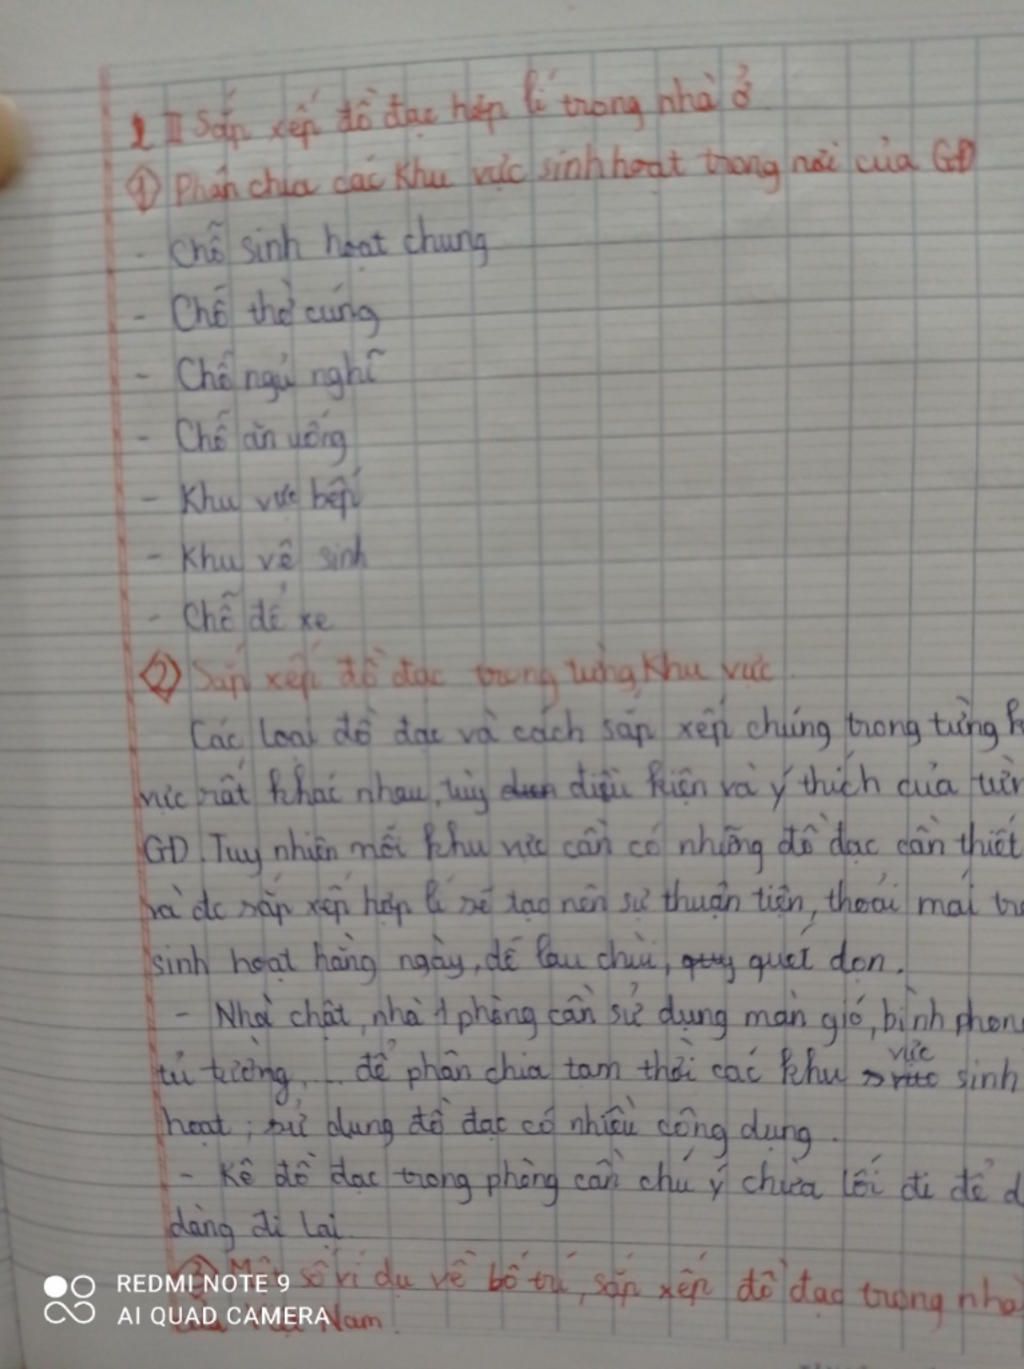 II Sắp xếp đồ đạc hợp lí trong nhà ở
① Phân chia các khu vực sinh hoạt trong nơi của GĐ
- Chỗ sinh hoạt chung
- Chỗ thờ cúng
- Chỗ ngủ nghĩ
- Chỗ ăn uống
- Khu vực bếp
- Khu vệ sinh
- Chỗ để xe
② Sắp xếp đồ đạc trong từng khu vực
Các loại đồ đạc và cách sắp xếp chúng trong từng
vực rất khác nhau, tùy điều kiện và ý thích của
GĐ. Tuy nhiên mỗi khu vực cần có những đồ đạc cần thiết
và đc sắp xếp hợp lí sẽ tạo nên sự thuận tiện, thoải mái
sinh hoạt hằng ngày, dễ lau chùi, quét dọn.
- Nhà chật, nhà 1 phòng cần sử dụng màn gió, bình
tủ tường,... để phân chia tạm thời các khu vực sinh
hoạt; sử dụng đồ đạc có nhiều công dụng.
- Kê đồ đạc trong phòng cần chú ý chừa lối đi để
dàng đi lại
③ Một số ví dụ về bố trí, sắp xếp đồ đạc trong nhà
Nam.
REDMI NOTE 9
AI QUAD CAMERA